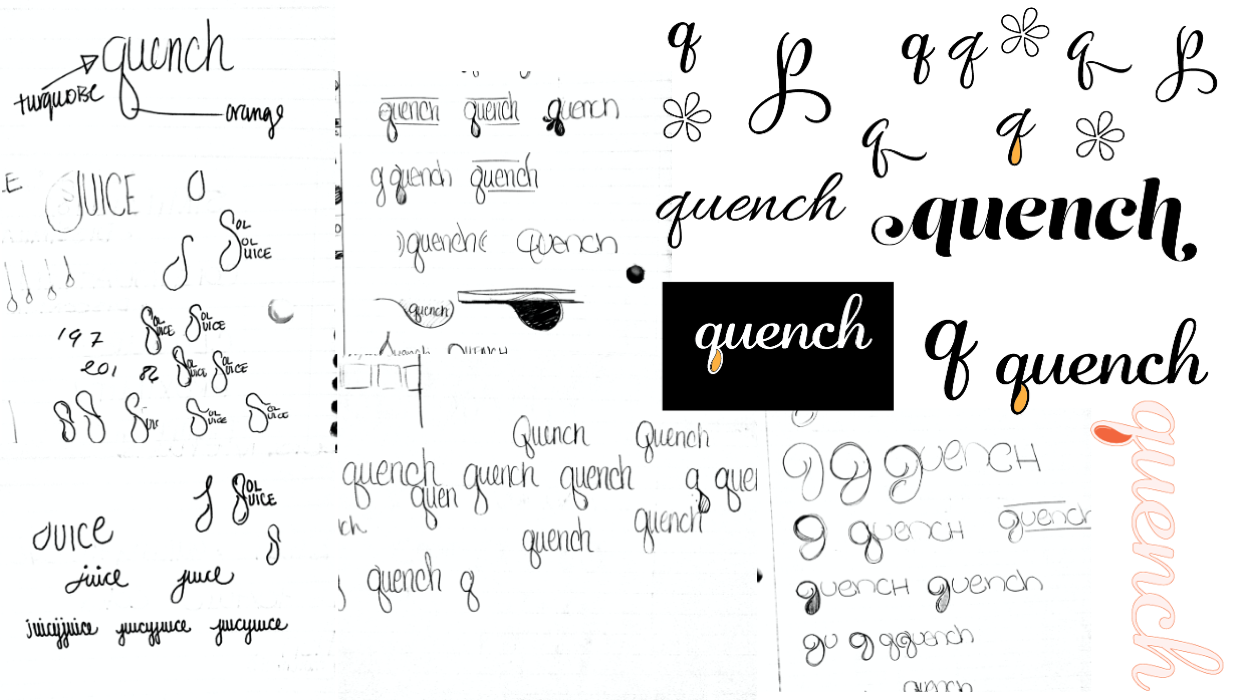 quench
turquoise
orange
E
JUICE
SOL
SOL
JUICE
197
201
SOL
JUICE
SOL
JUICE
SOL
JUICE
SOL
JUICE
SOL
JUICE
SOL
JUICE
JUICE
SOL
JUICE
juice juice
juicyjuice juicyjuice juicyjuice
quench quench quench
q quench quench
quench Quench
quench
Quench QUENCH
Quench Quench
quench quench quench q quen
quen
quench
quench
quench q
q
q q q
q
q
quench quench
quench
q quench
quench
q q quench
q quench quench
quench quench
qu q q quench
quench